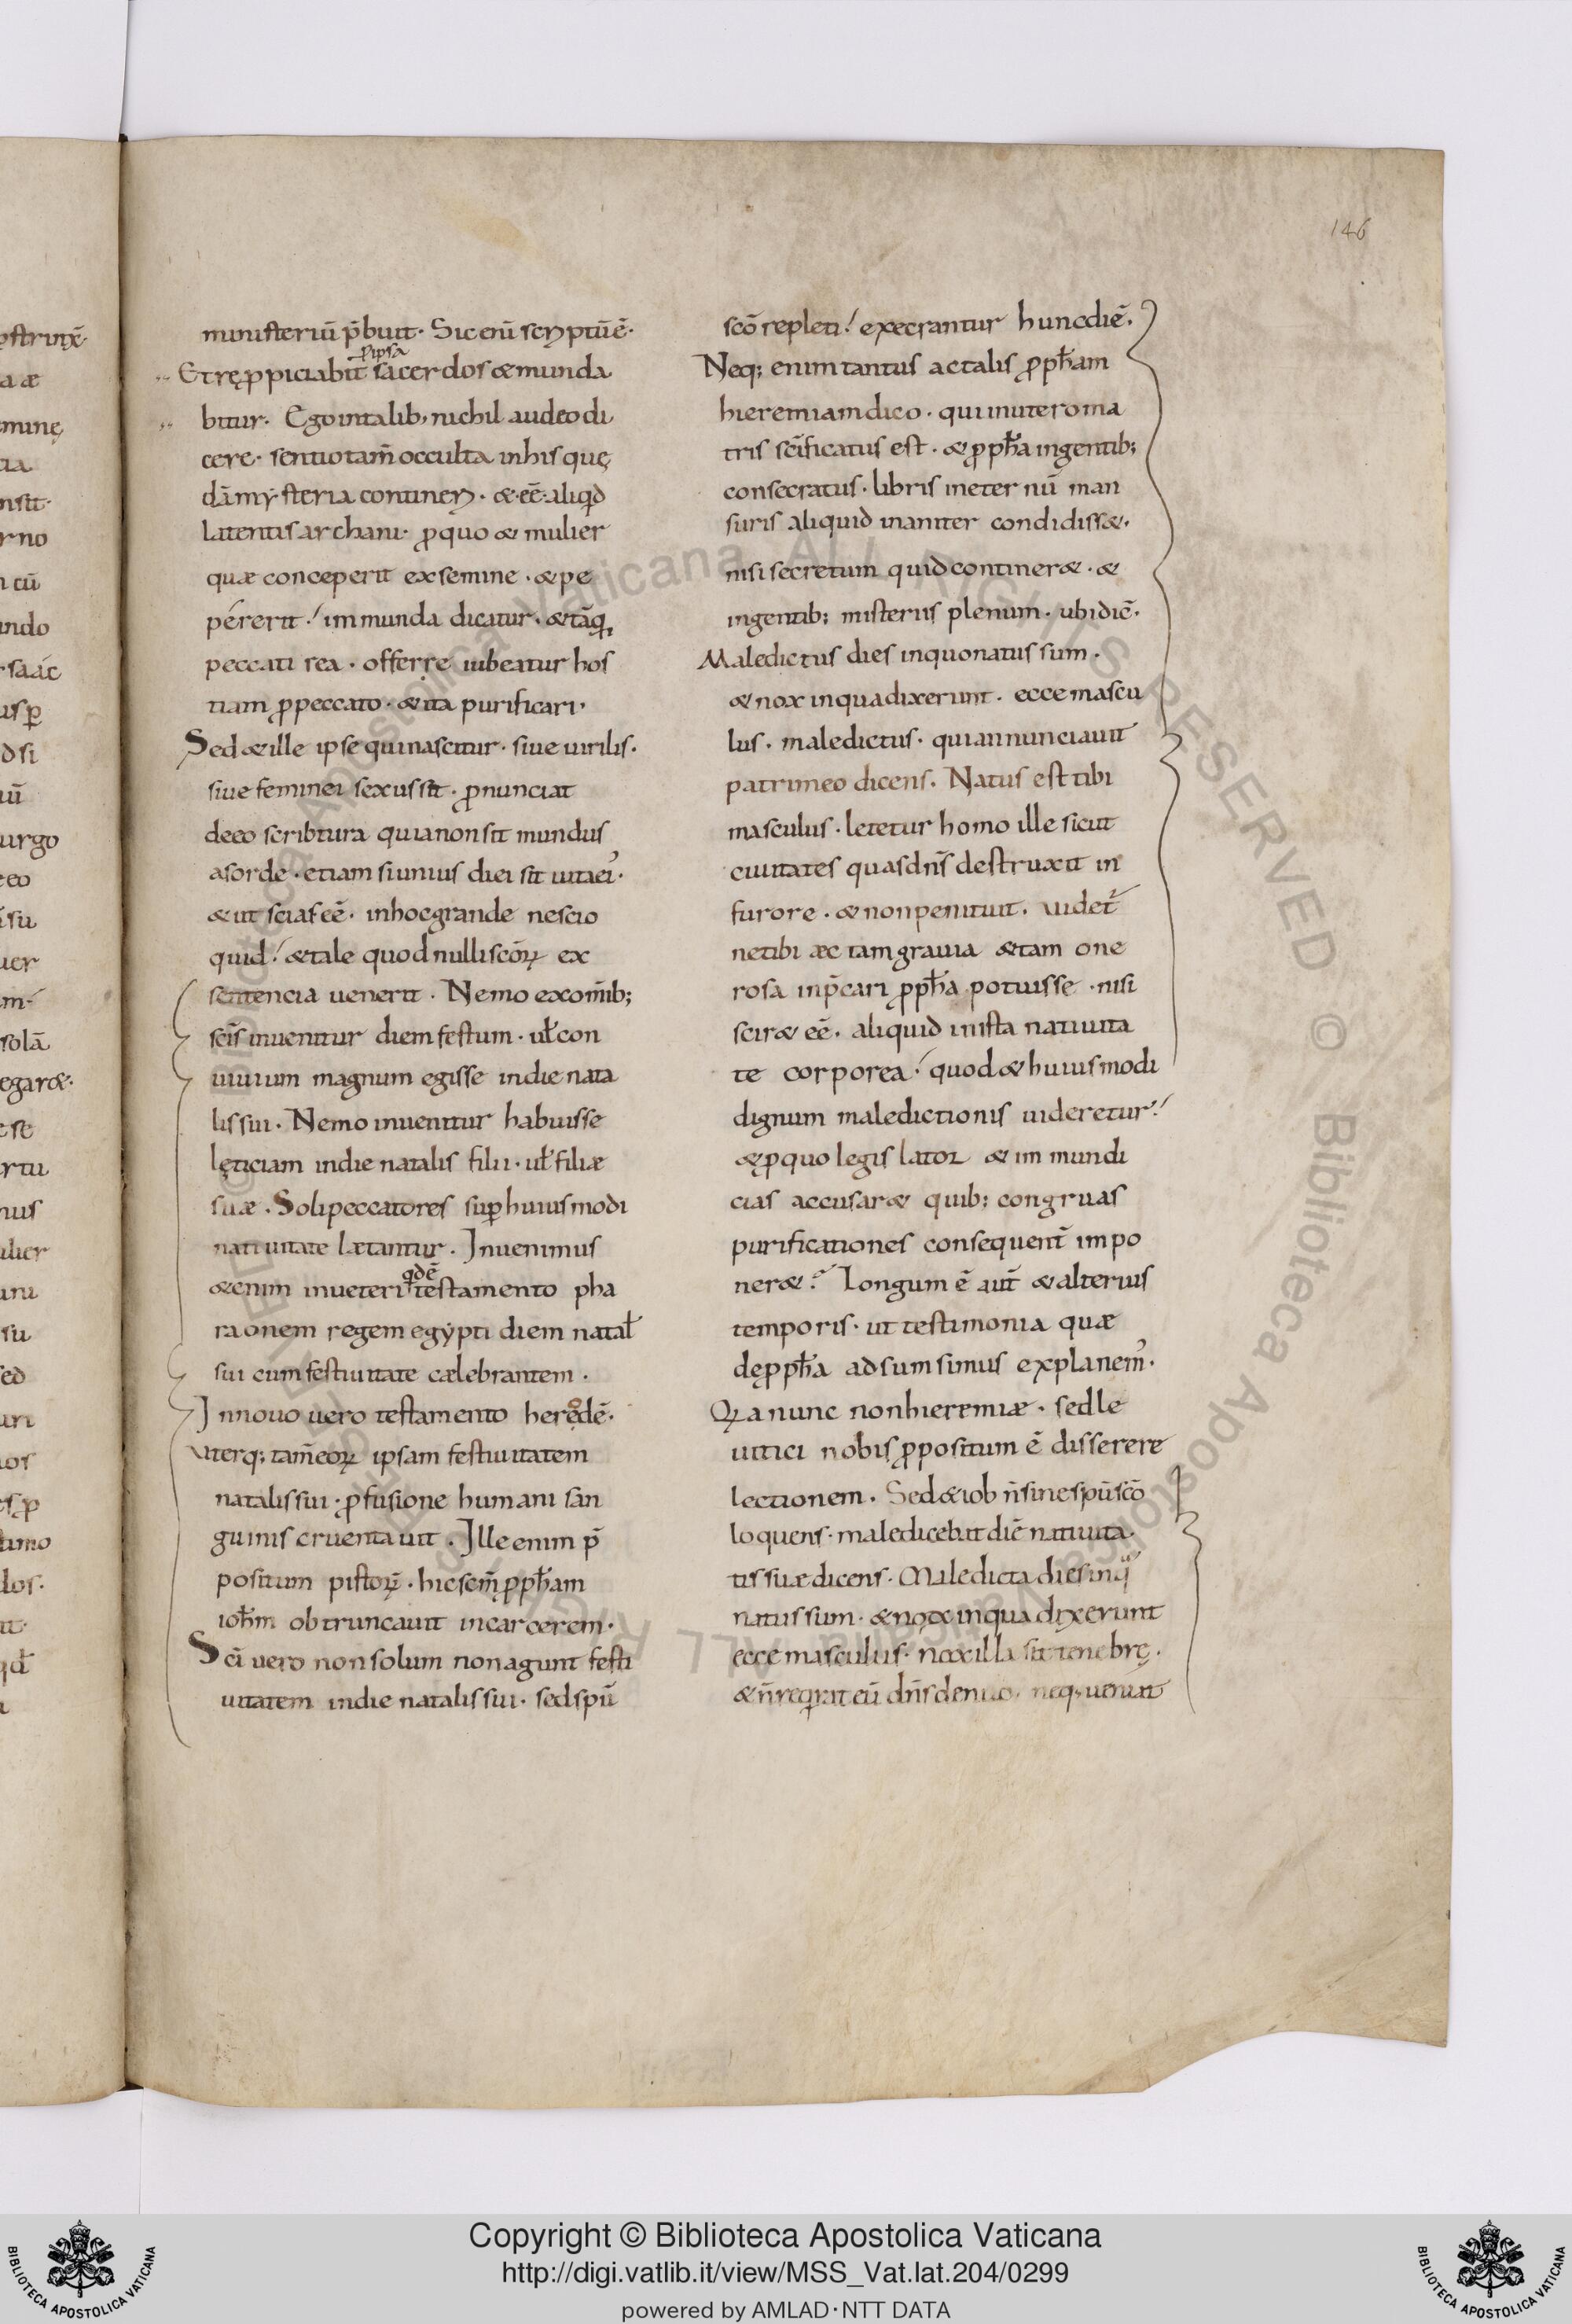 146
ministeriū p̄buit. Sic enī scriptū ē.
p ipsa
Et repropiciabit sacerdos & munda
bitur. Ego in talib; nichil audeo di
cere. sentio tam̄ occulta in his quę
dā mẏsteria contineri. & eē aliqid
latentis archani. pro quo & mulier
quæ conceperit ex semine. & pe
pérerit! immunda dicatur. & tāq,
peccati rea. offerre iubeatur hos
tiam pro peccato. & ita purificari.
Sed & ille ipse qui nascitur. siue uirilis.
siue feminei sexus sit. pronunciat
de eo scribtura quia non sit mundus
a sorde. etiam si unius diei sit uita ei'.
& ut scias eē. in hoc grande nescio
quid! & tale quod nulli scōrꝝ ex
sentencia uenerit. Nemo ex om̄ib;
scīs inuenitur diem festum. uł con
uiuium magnum egisse in die nata
lis sui. Nemo inuenitur habuisse
lęticiam in die natalis filii. uł filiæ
suæ. Soli peccatores sup huiusmodi
natiuitate lætantur. Inuenimus
qdē
&enim in ueteri testamento pha
raonem regem egẏpti diem natał
sui cum festiuitate cælebrantem.
In nouo uero testamento herodē.
Uterq; tam̄ eoꝝ ipsam festiuitatem
natalis sui. profusione humani san
guinis cruentauit. Ille enim p̄
positum pistoꝝ. hic scm̄ propħam
ioħm obtruncauit in carcerem.
Scī uero non solum non agunt festi
uitatem in die natalis sui. sed spū
scō repleti! execrantur hunc diē.
Neq; enim tantus ac talis propħam
hieremiam dico. qui in utero ma
tris scīficatus est. & propħa in gentib;
consecratus. libris in eternū man
suris aliquid inaniter condidiss&.
nisi secretum quid continer&. &
ingentib; misteriis plenum. ubi dic̄.
Maledictus dies in quo natus sum.
& nox in qua dixerunt. ecce mascu
lus. maledictus. qui annunciauit
patri meo dicens. Natus est tibi
masculus. letetur homo ille sicut
ciuitates quas dn̄s destruxit in
furore. & non penituit. uidet̄
ne tibi æc tam grauia & tam one
rosa inp̄cari propħa potuisse. nisi
scir& eē. aliquid in ista natiuita
te corporea! quod & huiusmodi
dignum maledictionis uideretur!
& p quo legis lator & immundi
cias accusar& quib; congruas
purificationes consequent̄ impo
ner&? Longum ē aut̄ & alterius
temporis. ut testimonia quæ
de propħa adsumsimus explanem'.
Qꝝa nunc non hieremiæ. sed le
uitici nobis propositum ē disserere
lectionem. Sed & iob n̄ sine spū scō
loquens. maledicebat diē natiuita
tis suæ dicens. Maledicta dies in qͣ
natus sum. & nox in qua dixerunt
ecce masculus. nox illa sit tenebrę.
& n̄ reqirat eū dn̄s denuo. neq; ueniat
Copyright © Biblioteca Apostolica Vaticana
http://digi.vatlib.it/view/MSS_Vat.lat.204/0299
powered by AMLAD·NTT DATA